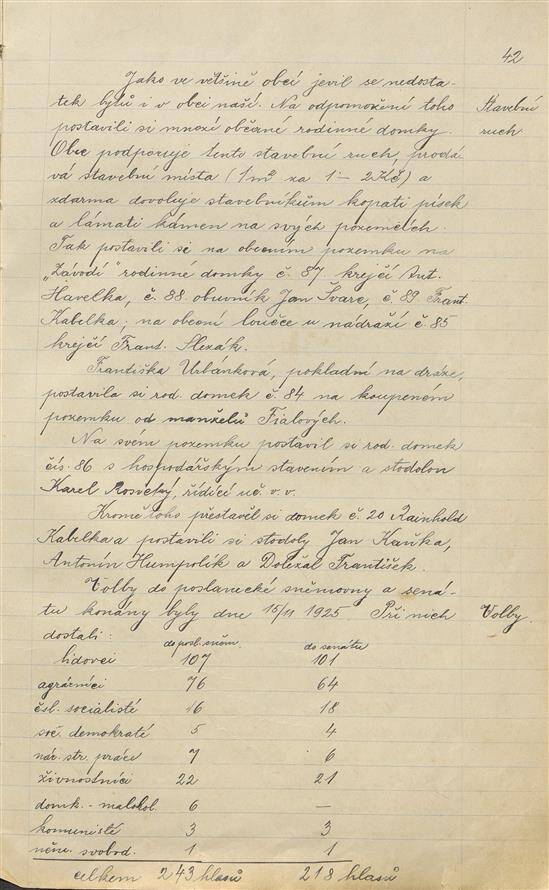 42
Jako ve většině obcí jevil se nedosta-
tek bytů i v obci naší. Na odpomožení toho
Stavební
postavili si mnozí občané rodinné domky.
ruch
Obec podporuje tento stavební ruch, prodá
vá stavební místa (1 m² za 1 - 2 Kč) a
zdarma dovoluje stavebníkům kopati písek
a lámati kámen na svých pozemcích.
Tak postavili si na obecním pozemku na
„Závodí" rodinné domky č. 87. krejčí Ant.
Havelka, č. 88. obuvník Jan Švarc, č. 89 Frant.
Kabelka; na obecní loučce u nádraží č. 85
krejčí Frant. Slezák.
Františka Urbánková, pokladní na dráze,
postavila si rod. domek č. 84 na koupeném
pozemku od manželů Fialových.
Na svém pozemku postavil si rod. domek
čís. 86 s hospodářským stavením a stodolou
Karel Rosvetský, řídící uč. v. v.
Kromě toho přestavěl si domek č. 20 Rainhold
Kabelka a postavili si stodoly Jan Kaňka,
Antonín Humpolík a Doležal František.
Volby do poslanecké sněmovny a sená-
tu konány byly dne 15/11 1925 Při nich
Volby.
dostali: do posl. sněm. do senátu
lidovci 107 101
agrárníci 76 64
čsl. socialisté 16 18
soc. demokraté 5 4
nár. str. práce 7 6
živnostníci 22 21
domk. - malorol. 6 —
komunisté 3 3
něm. svobod. 1 1
celkem 243 hlasů 218 hlasů